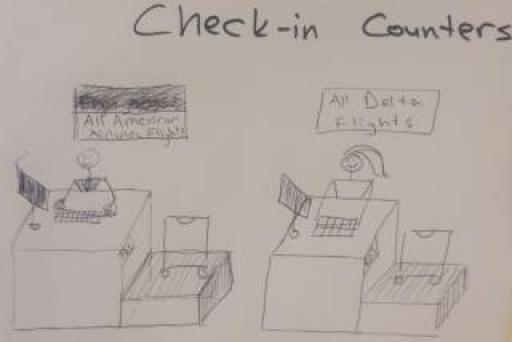 Check-in Counters
All American
Airlines Flights
All Delta
Flights